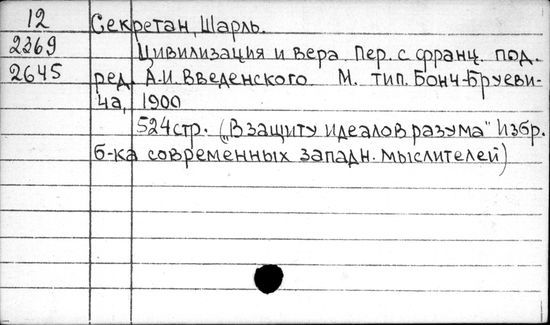 12 Секретан, Шарль.
2269 Цивилизация и вера. Пер. с франц. под.
2645 ред. А.И. Введенского. М. тип. Бонч-Бруеви-
ча, 1900
524 стр. („В защиту идеалов разума" Избр.
б-ка современных западн. мыслителей)